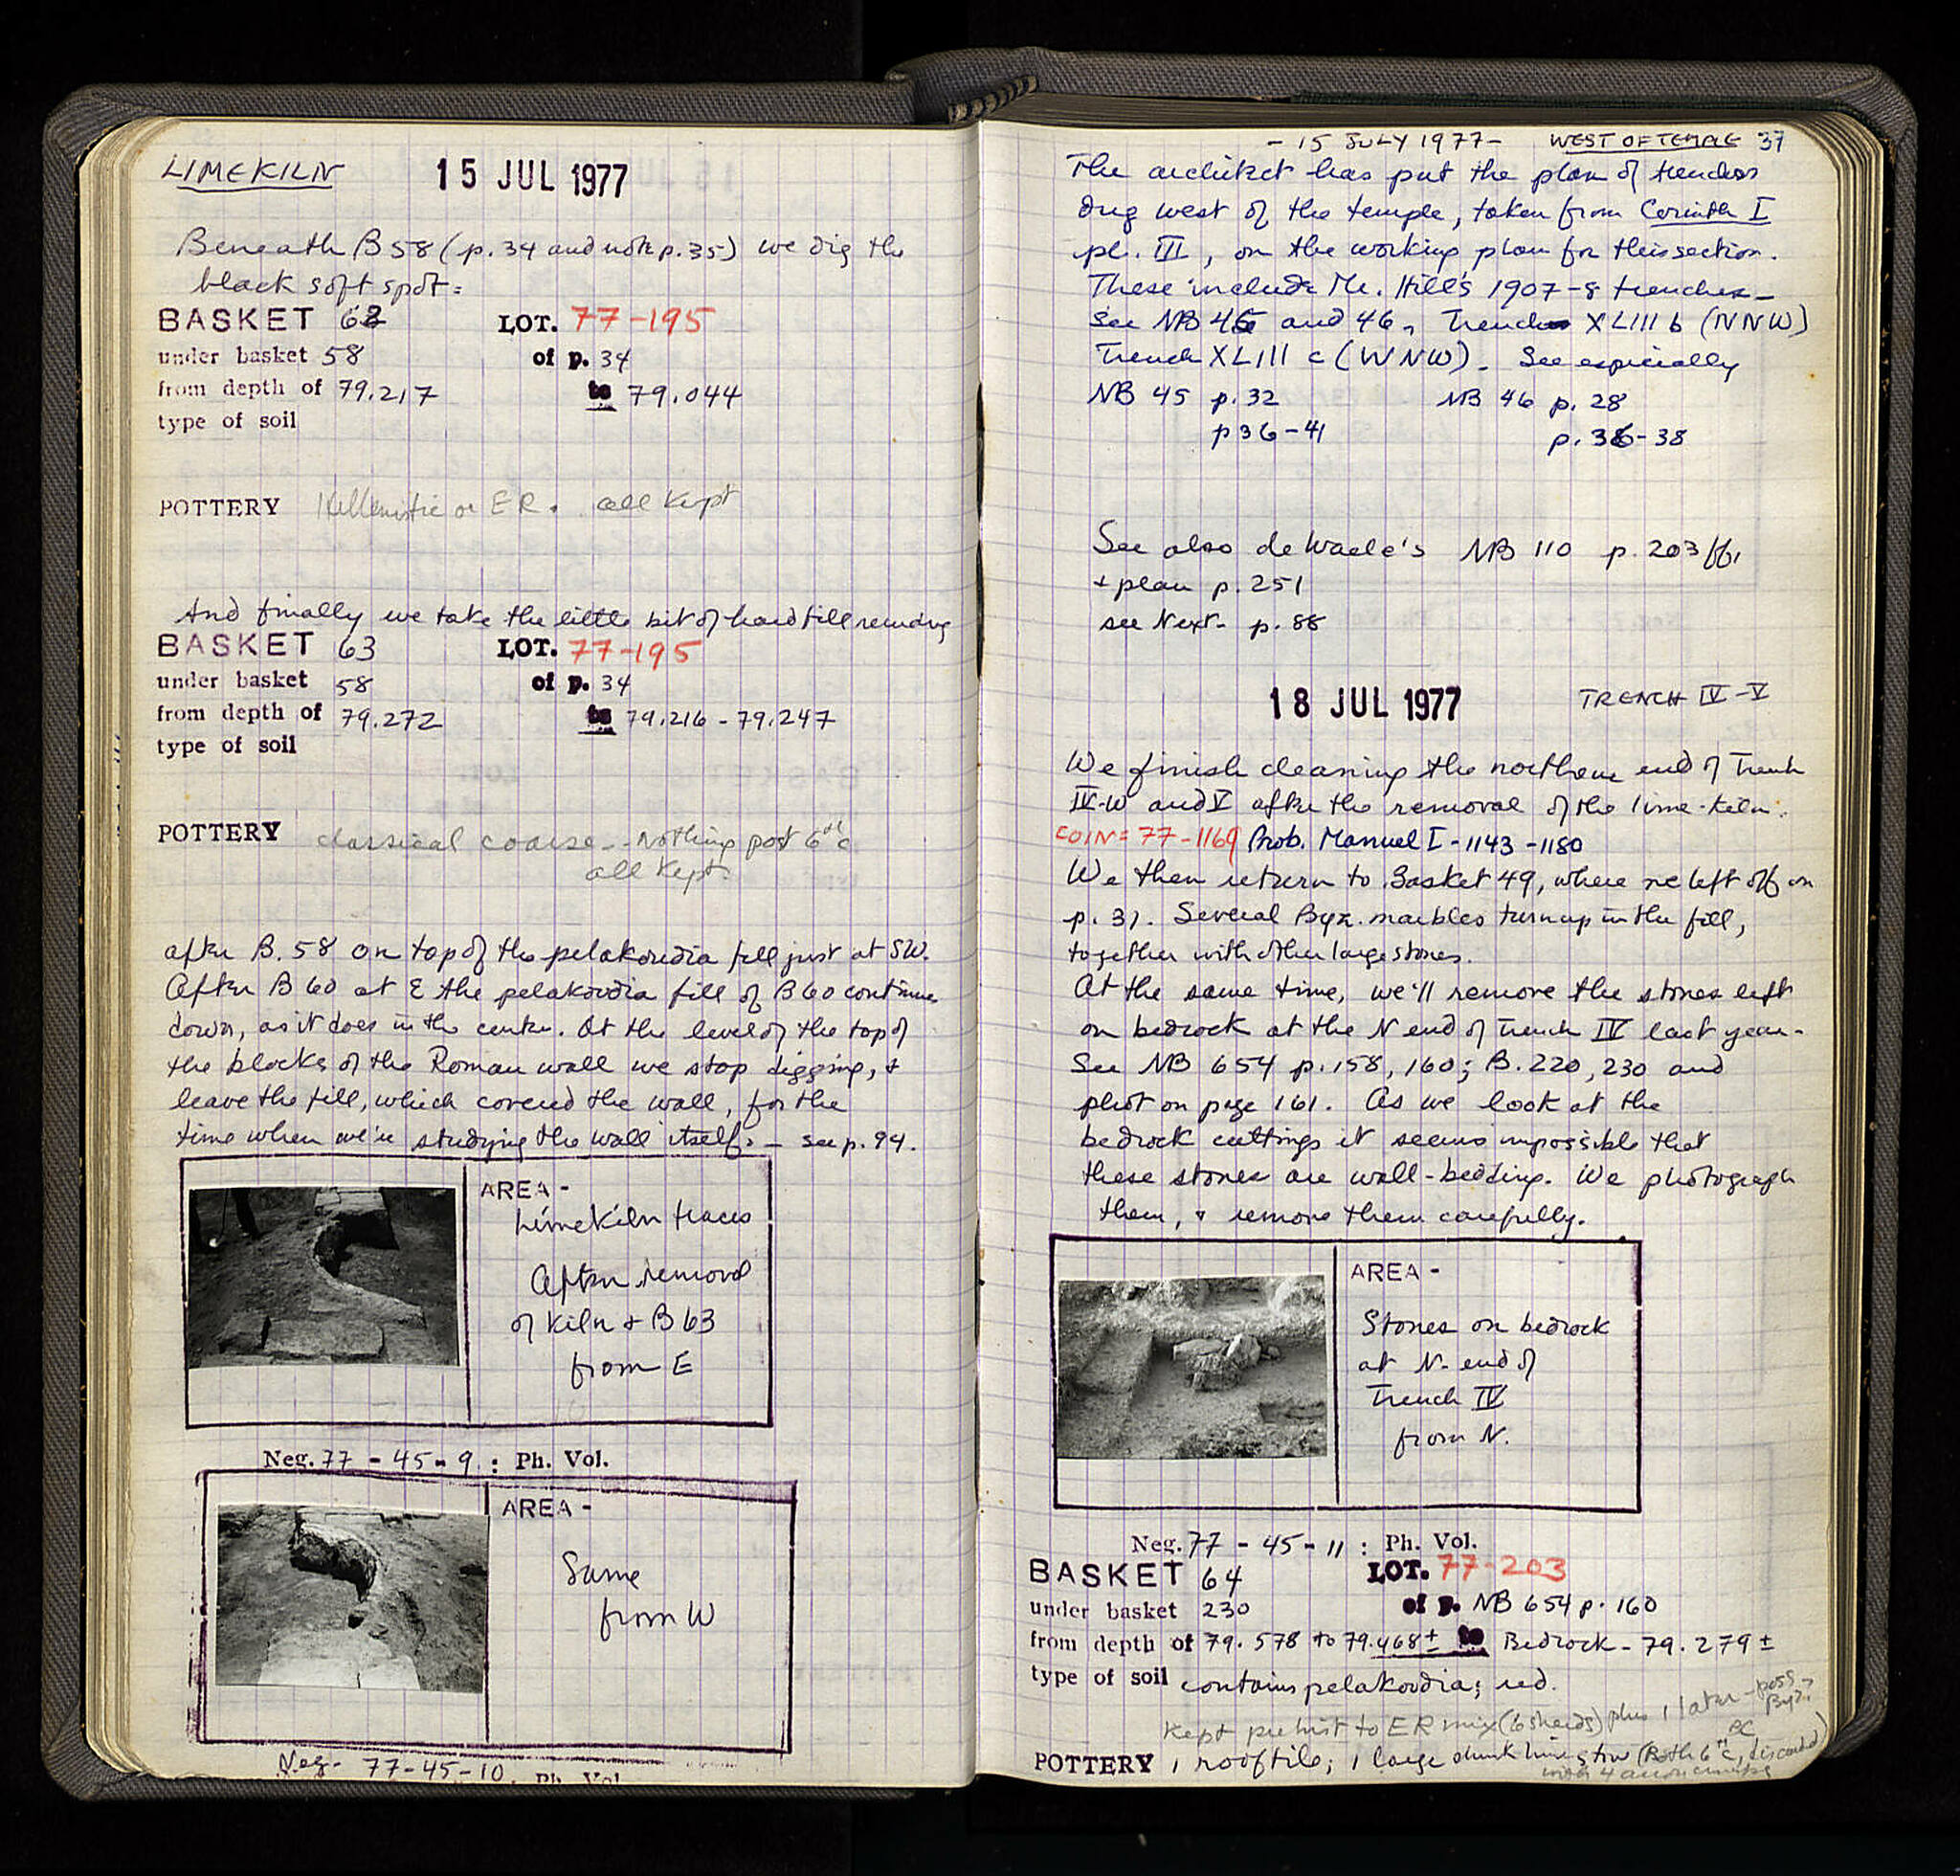 LIMEKILN 15 JUL 1977
Beneath B58 (p. 34 and note p. 35) we dig the
black soft spot:
BASKET 62 LOT. 77-195
under basket 58 of p. 34
from depth of 79.217 to 79.044
type of soil
POTTERY Hellenistic or ER. all kept
And finally we take the little bit of hard fill remaining
BASKET 63 LOT. 77-195
under basket 58 of p. 34
from depth of 79.272 to 79.216 - 79.247
type of soil
POTTERY classical coarse - Nothing post 6th c
all kept.
after B. 58 on top of the pelakoudia fell just at SW.
After B 60 at E the pelakoudia fill of B60 continues
down, as it does in the center. At the level of the top of
the blocks of the Roman wall we stop digging, +
leave the fill, which covered the wall, for the
time when we're studying the wall itself. - see p. 94.
AREA -
Limekiln traces
After removal
of kiln + B 63
from E
Neg. 77 - 45 - 9 : Ph. Vol.
AREA -
Same
from W
Neg. 77-45-10. Ph. Vol
- 15 JULY 1977 - WEST OF TEMPLE 37
The architect has put the plan of trenches
dug west of the temple, taken from Corinth I
pl. III, on the working plan for this section.
These include Mr. Hill's 1907-8 trenches -
see NB 45 and 46, Trench XLIII b (NNW)
Trench XLIII c (WNW). See especially
NB 45 p. 32 NB 46 p. 28
p 36-41 p. 36-38
See also de Waele's NB 110 p. 203 ff,
+ plan p. 251
see Next - p. 88
18 JUL 1977 TRENCH IV-V
We finish cleaning the northern end of Trench
IV-W and V after the removal of the lime-kiln.
COIN = 77-1169 Prob. Manuel I - 1143-1180
We then return to Basket 49, where we left off on
p. 31. Several Byz. marbles turn up in the fill,
together with other large stones.
At the same time, we'll remove the stones left
on bedrock at the N end of Trench IV last year -
See NB 654 p. 158, 160; B. 220, 230 and
phot on page 161. As we look at the
bedrock cuttings it seems impossible that
these stones are wall-bedding. We photograph
them, + remove them carefully.
AREA -
Stones on bedrock
at N. end of
Trench IV
from N.
Neg. 77 - 45 - 11 : Ph. Vol.
BASKET 64 LOT. 77-203
under basket 230 of p. NB 654 p. 160
from depth of 79.578 to 79.468± to Bedrock - 79.279±
type of soil contains pelakoudia; red.
Kept prehist to ER mix (6 sherds) plus 1 later - poss. Byz?
POTTERY 1 rooftile; 1 large chunk (Both 6th c BC, discarded)
with 4